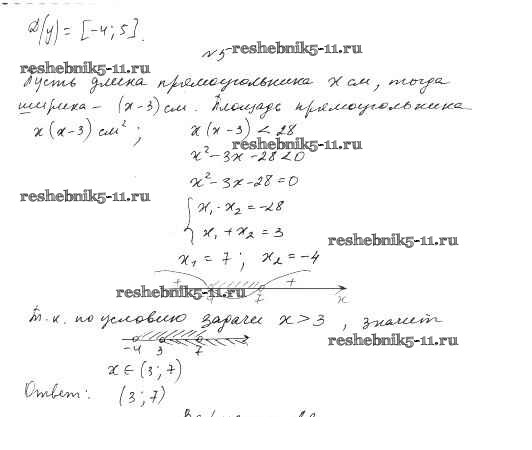 D(y) = [-4; 5].
№5
reshebnik5-11.ru
reshebnik5-11.ru
Пусть длина прямоугольника x см, тогда
ширина - (x-3) см. Площадь прямоугольника
x(x-3) см²; x(x-3) < 28
reshebnik5-11.ru
x² - 3x - 28 < 0
x² - 3x - 28 = 0
reshebnik5-11.ru
{ x₁ · x₂ = -28
x₁ + x₂ = 3
reshebnik5-11.ru
x₁ = 7; x₂ = -4
+ +
reshebnik5-11.ru 7 x
Т.к. по условию задачи x > 3, значит
reshebnik5-11.ru
-4 3 7
x ∈ (3; 7)
Ответ: (3; 7)